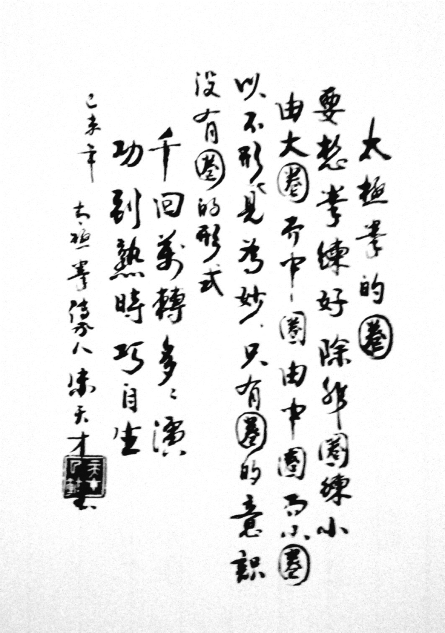 太極拳的圈
要想拳練好除非圈練小
由大圈而中圈由中圈而小圈
以不形見為妙只有圈的意識
没有圈的形式
千回萬轉多〻演
功到熟時巧自生
己未年 太極拳傳人陳天才書